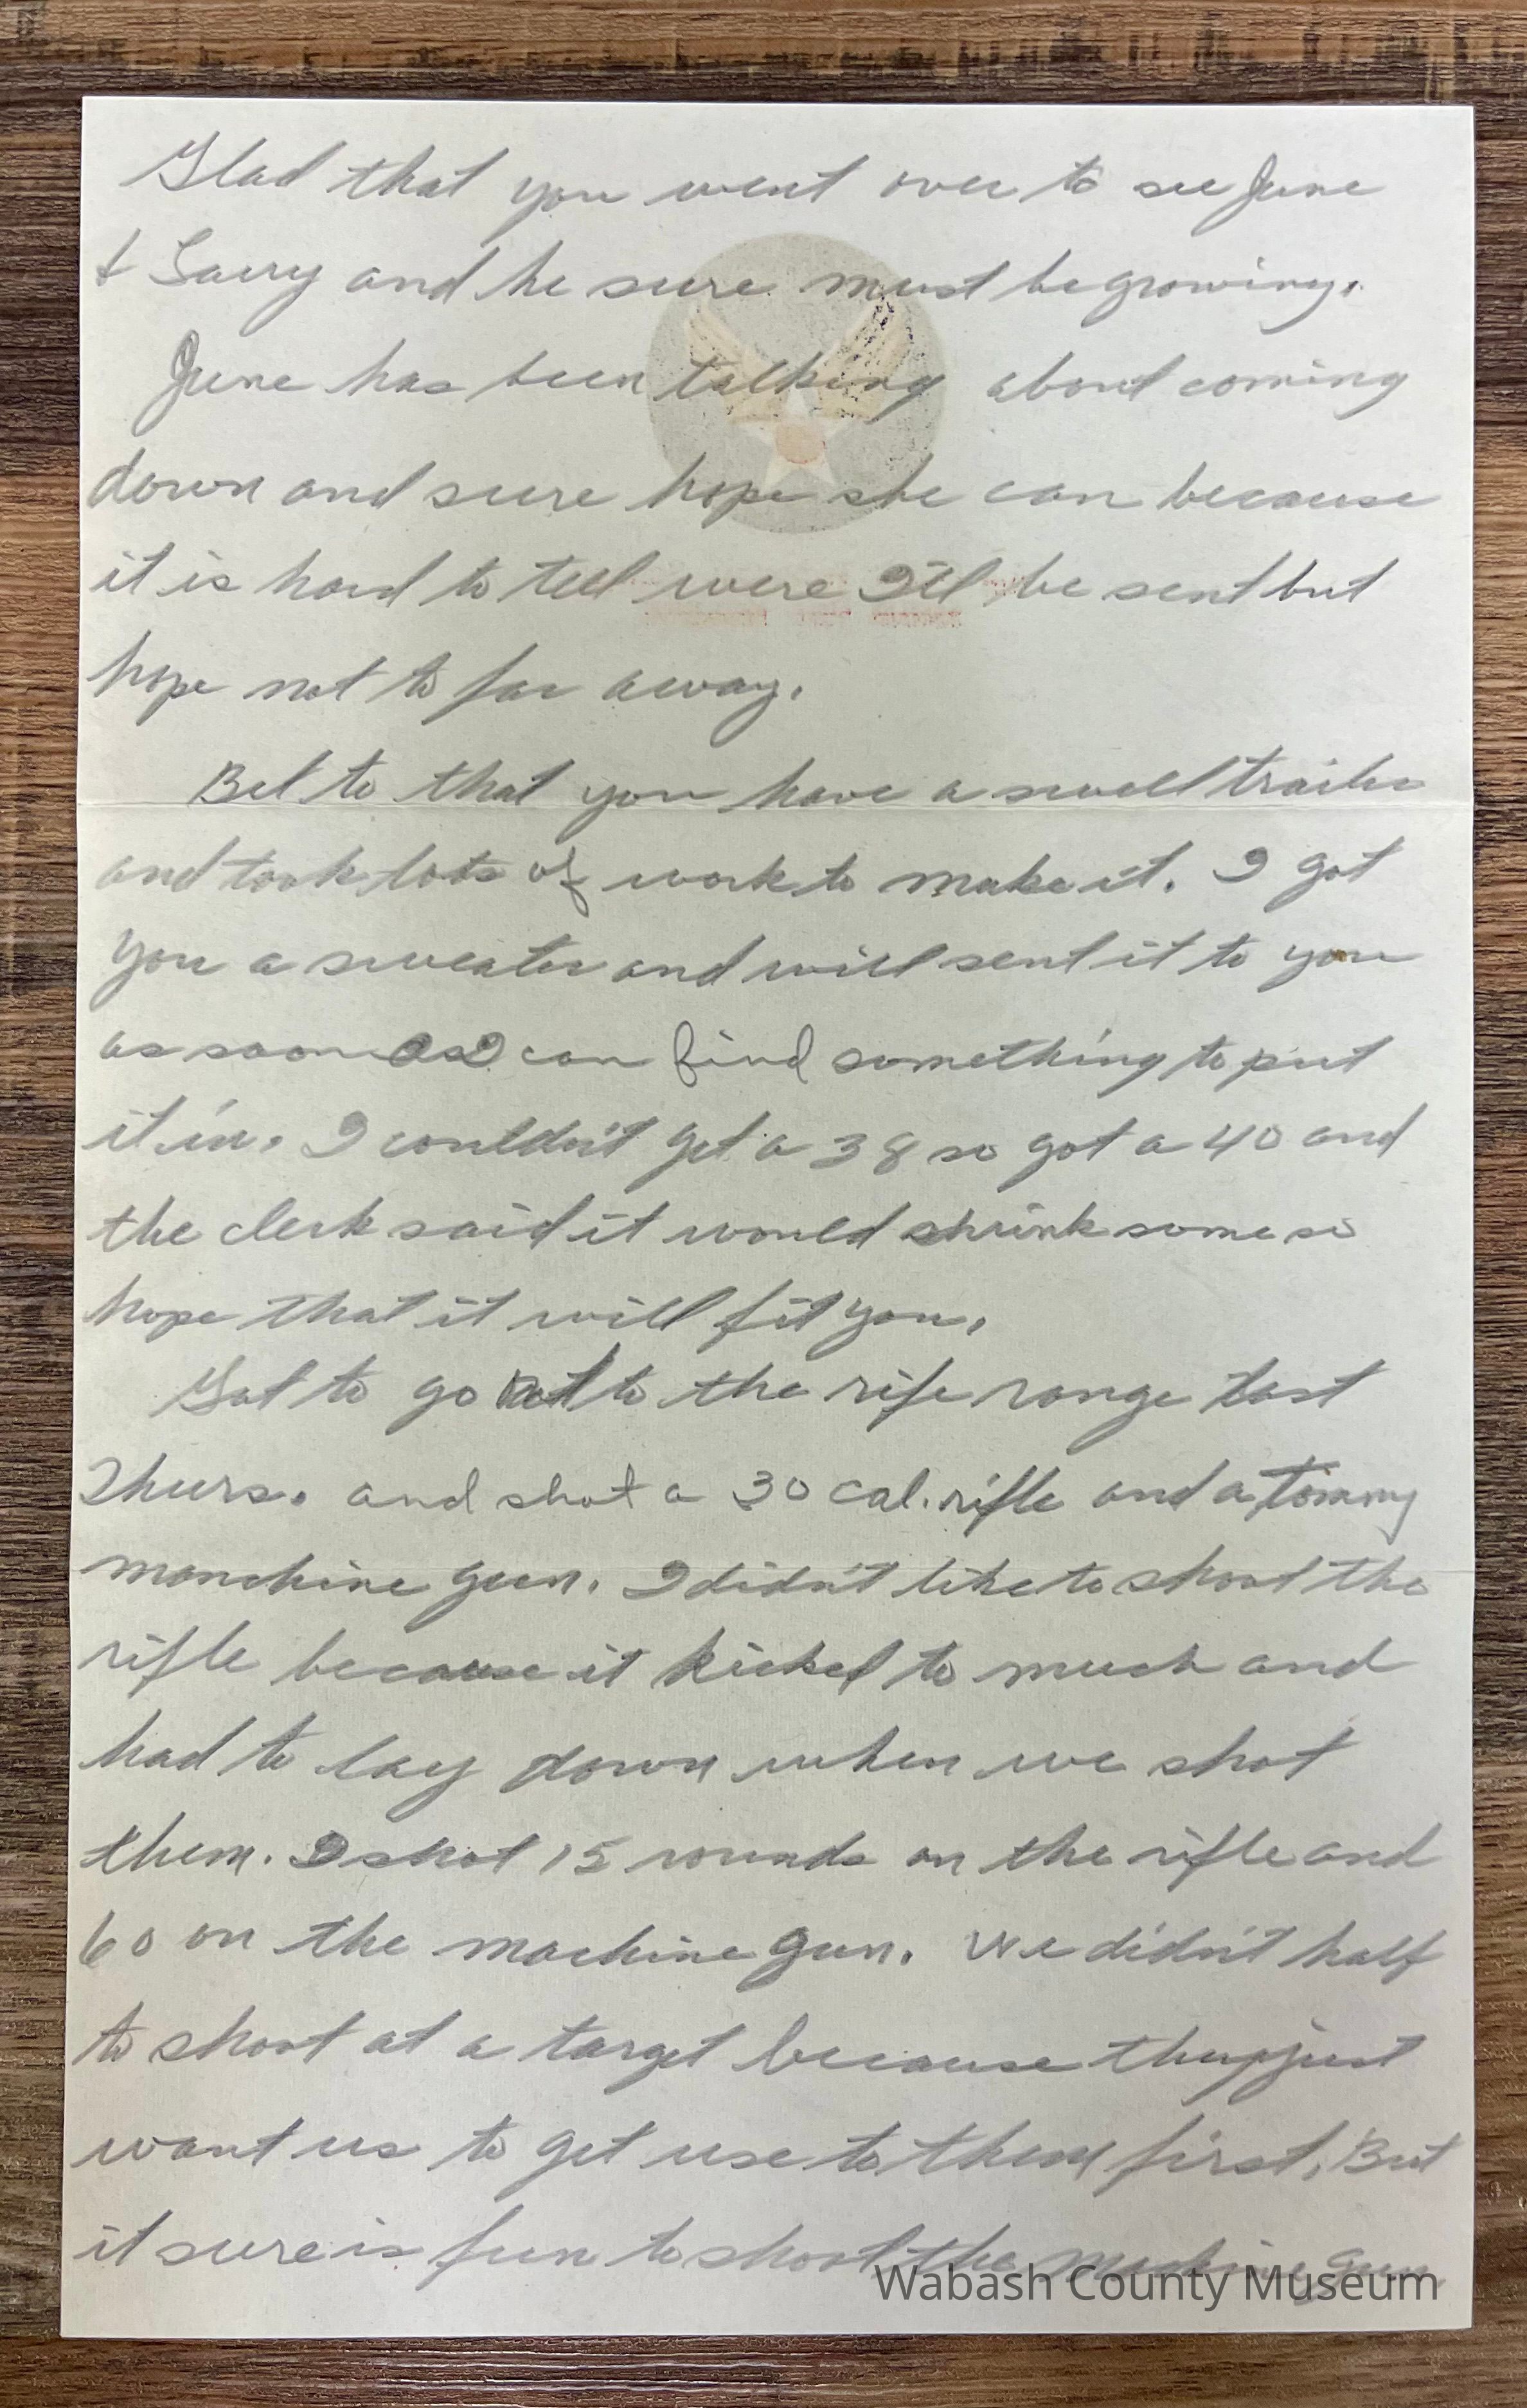 Glad that you went over to see June
& Larry and he sure must be growing.
June has been talking about coming
down and sure hope she can because
it is hard to tell were I'll be sent but
hope not to far away.
Bet to that you have a swell trailer
and took lots of work to make it. I got
you a sweater and will sent it to you
as soon as I can find something to put
it in. I couldn't get a 38 so got a 40 and
the clerk said it would shrink some so
hope that it will fit you.
Got to go out to the rife range last
Thurs. and shot a 30 cal. rifle and a Tommy
manchine gun. I didn't like to shoot the
rifle because it kicked to much and
had to lay down when we shot
them. I shot 15 rounds on the rifle and
60 on the machine gun. We didn't half
to shoot at a target because they just
want us to get use to them first. But
it sure is fun to shoot the machine gun
Wabash County Museum